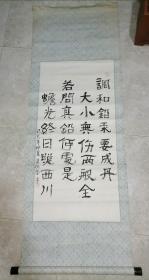 調和鉛汞要成丹
大小無傷两般全
若問真鉛何處是
蟾光終日照西川